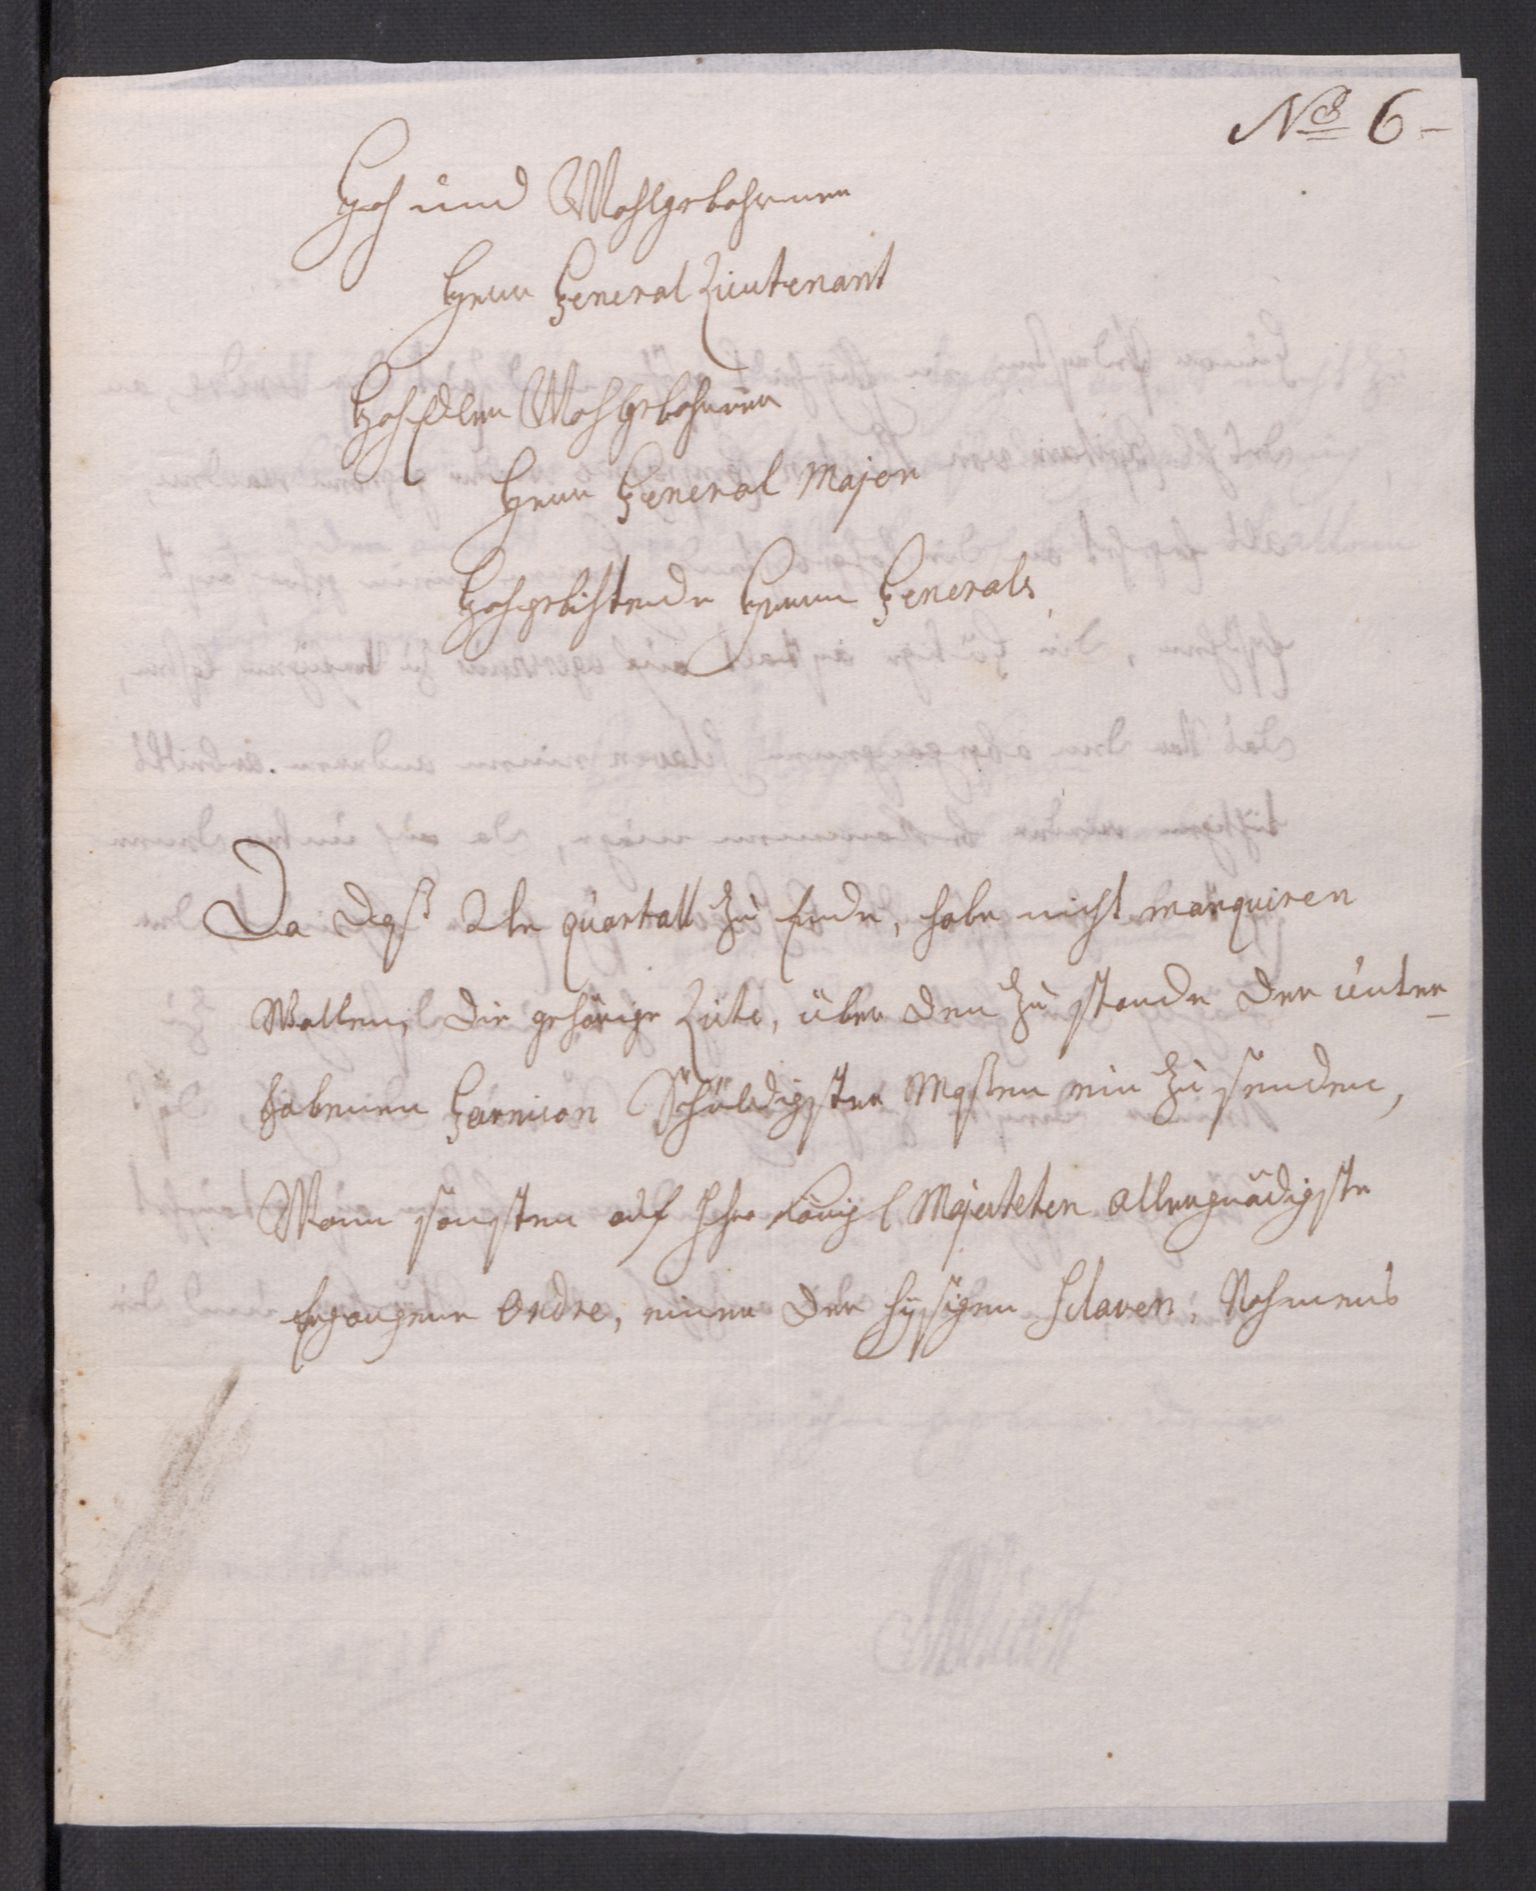 No 6
Hoch und Wohlgebohrner
Herr General Lieutenant
HochEdler Wohlgebohrner
Herr General Major
Hochgebiethende Herren Generals
Da das 2te quartall zu Ende, habe nicht manquiren
Wollen, die gehörige Liste, über den Zu stande der unter
habenen Garnison Schuldigster Maßen ein zu senden,
Wann sonsten auf Ihro Königl Majesteten allergnädigste
Ergangene Ordre, einer der hysigen Sclaven, Nahmens